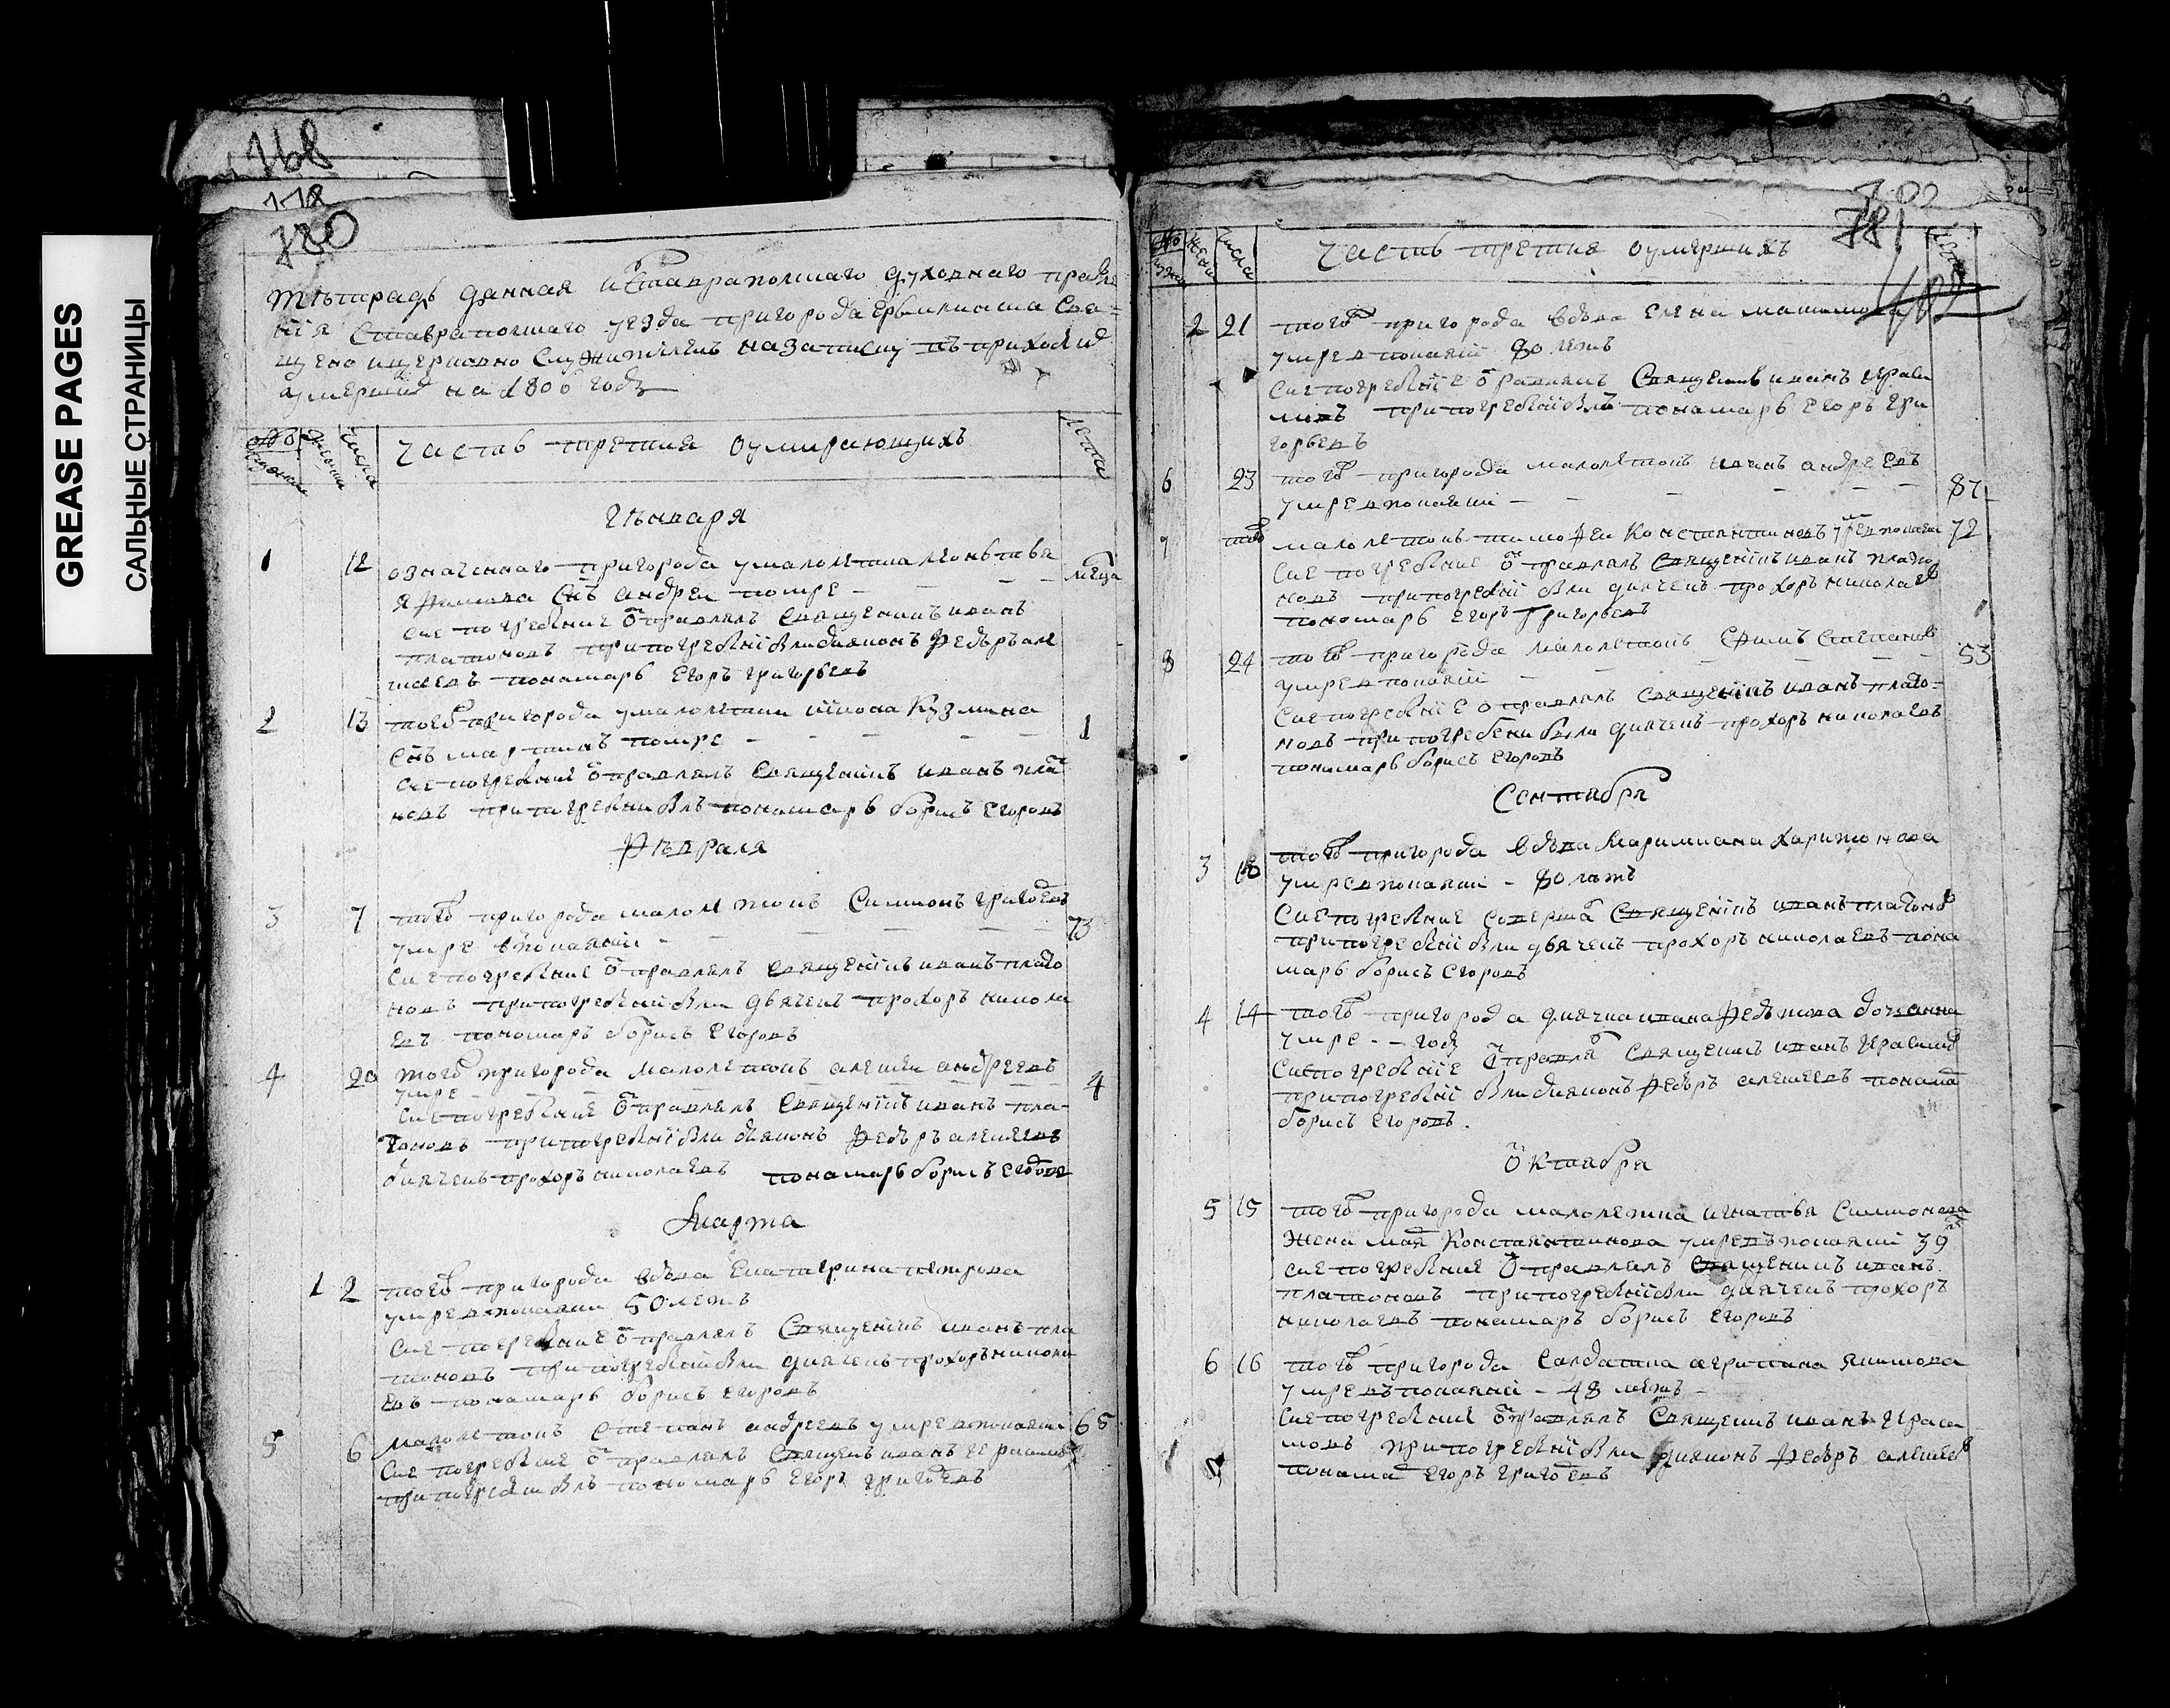 GREASE PAGES
САЛЬНЫЕ СТРАНИЦЫ
168
178
780
тѣтрадь данная изставрапольскаго духовнаго правле
нія ставрапольскаго уезда пригорода ерыклинска свя=
щено ицерковно служителемъ назаписку въ приходѣ
умершихъ на 1806 годъ
№ числа лета
часть третия оумирающихъ
Генваря
1 12 означеннаго пригорода умалолетка леонтья
ефимова снъ андреи помре -
сие погребение отправлялъ священникъ иванъ
платоновъ при погребеніи были дияконъ федоръ але
ксѣевъ пономарь егоръ григорьевъ
2 13 того пригорода умалолетка Кузмина 1
снъ мартинъ помре -
сие погребение отправлялъ священникъ иванъ плато
новъ при погребении былъ пономарь борисъ егоровъ
Фѣвраля
3 7 того пригорода малолѣтокъ Симионъ григоревъ 73
умре впокаянии -
сие погребение отправлялъ священникъ иванъ плато
новъ при погребеніи были дьячекъ прохоръ никола
евъ пономаръ борисъ егоровъ
4 20 того пригорода малолетокъ алексеи андреевъ 4
умре -
сие погребение отправлялъ священникъ иванъ пла-
тоновъ при погребеніи были дияконъ федоръ алексѣевъ
диячекъ прохоръ николаевъ пономарь борисъ егоровъ
Марта
1 2 того пригорода вдова Екатерина петрова
умре впокаянии 50 летъ
сие погребение отправлялъ священникъ иванъ пла
тоновъ при погребеніи были диячекъ прохоръ никола
евъ пономарь борисъ егоровъ
5 6 малолетокъ степанъ андреевъ умре впокаянии 65
сие погребение отправлялъ священникъ иванъ герасимовъ
при погребении былъ пономарь егоръ григоревъ
781
482
№ числа лета
часть третия оумершихъ
2 21 того пригорода вдова елена
умре впокаянии 80 летъ
сие погребеніе отправлялъ священникъ иванъ гераси
мовъ при погребеніи былъ пономарь егоръ гри
горьевъ
6 23 того пригорода малолетокъ иванъ андреевъ 87
умре впокаянии -
7 того малолетокъ тимофеи Константиновъ умре впокаяни 72
сие погребение отправлялъ священникъ иванъ плато
новъ при погребеніи были диячекъ прохоръ николаевъ
пономарь егоръ григорьевъ
8 24 того пригорода малолетокъ ефимъ степановъ 53
умре впокаянии
сие погребеніе отправлялъ священникъ иванъ плато-
новъ при погребени были диячекъ прохоръ николаевъ
пономарь борисъ егоровъ
Сентября
3 10 того пригорода вдова Маримиана харитонова
умре впокаянии - 80 летъ
сие погребение соверша священникъ иванъ платоновъ
при погребеніи были дьячекъ прохоръ николаевъ поно
марь борисъ егоровъ
4 14 того пригорода диячка ивана федотова дочь анна
умре - - годъ
сие погребение отправля священникъ иванъ герасимовъ
при погребеніи были дияконъ федоръ алексеевъ понома
борисъ егоровъ.
Октября
5 15 того пригорода малолетка игнатья симионова
жена Константинова умре въ покаянии 39
сие погребение отправлялъ священникъ иванъ
платоновъ при погребеніи были диячекъ прохоръ
николаевъ пономаръ борисъ егоровъ
6 16 того пригорода салдатка агрипина якимова
умре въ покаянии - 48 летъ -
сие погребение отправлялъ священникъ иванъ гераси
мовъ при погребеніи были дияконъ федоръ алексеевъ
понома егоръ григоревъ